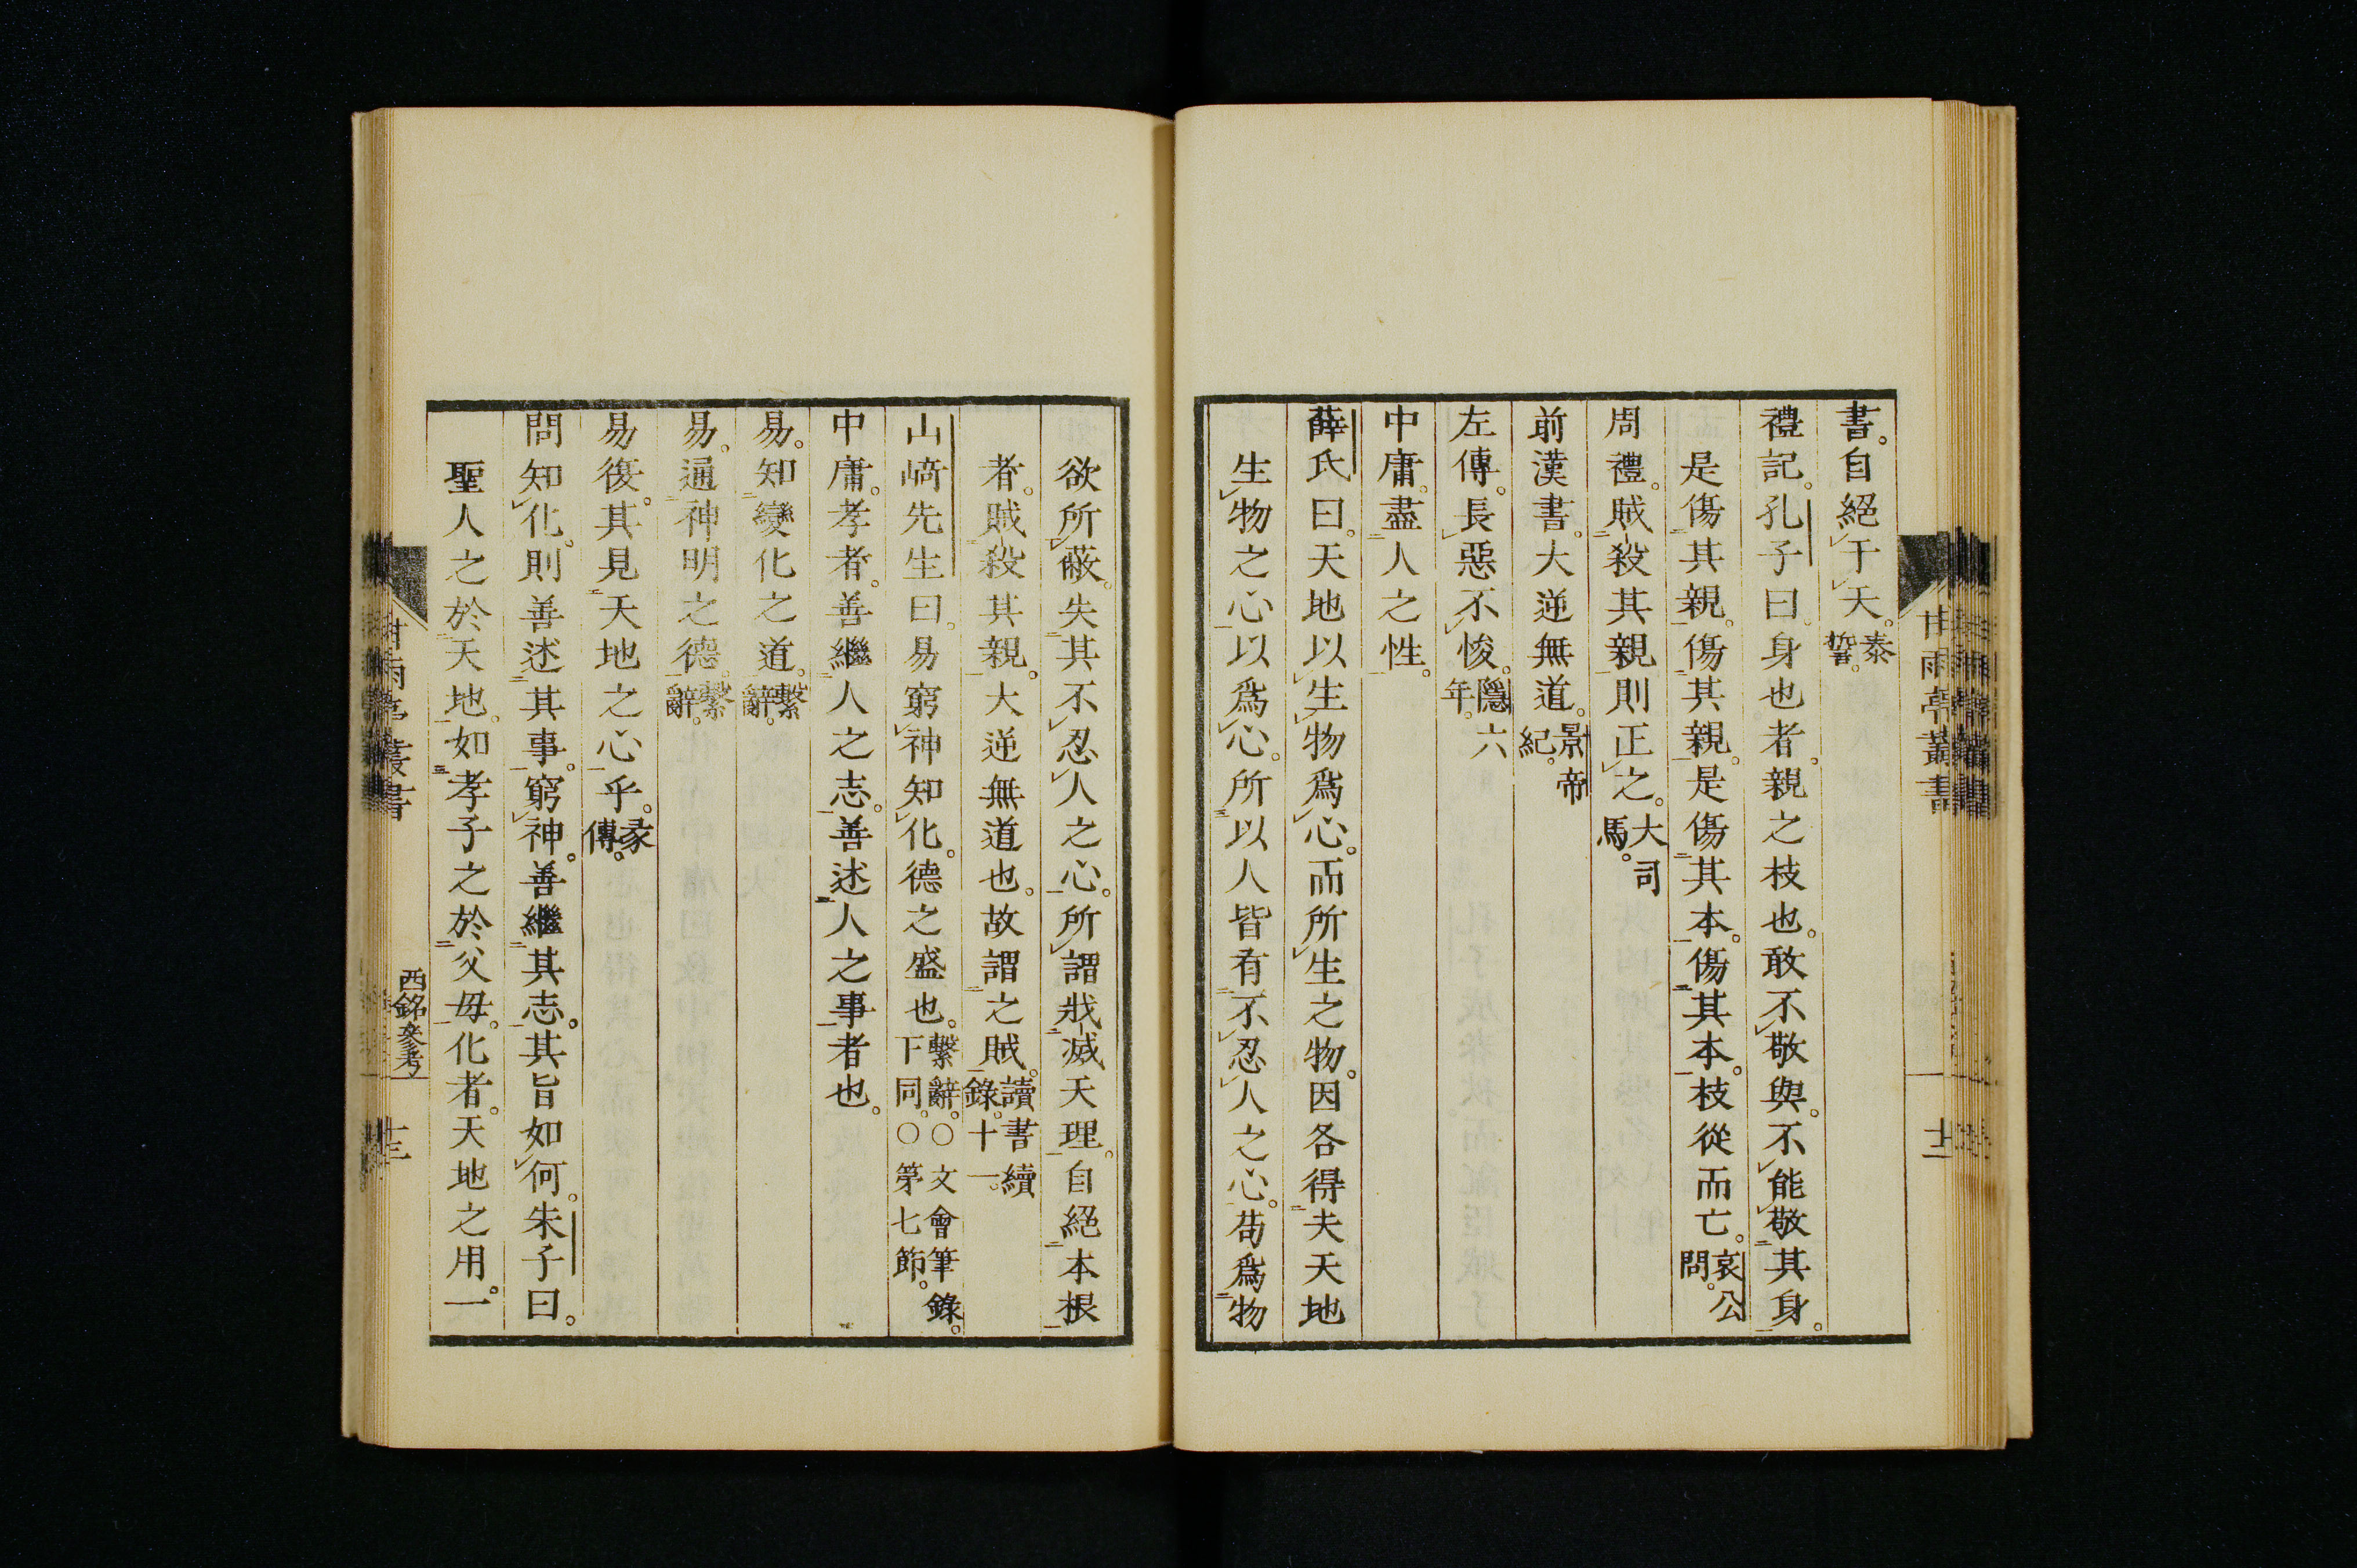 書。自絕于天。泰誓。
禮記。孔子曰。身也者。親之枝也。敢不敬與。不能敬其身。
是傷其親。傷其親。是傷其本。傷其本。枝從而亡。哀公問。
周禮。賊殺其親則正之。大司馬。
前漢書。大逆無道。景帝紀。
左傳。長惡不悛。隱六年。
中庸。盡人之性。
薛氏曰。天地以生物爲心。而所生之物。因各得夫天地
生物之心以爲心。所以人皆有不忍人之心。苟爲物
甘雨亭叢書
十二
欲所蔽。失其不忍人之心。所謂戕滅天理。自絕本根
者。賊殺其親。大逆無道也。故謂之賊。讀書續錄。十一。
山﨑先生曰。易窮神知化。德之盛也。繫辭。○文會筆錄。下同。○第七節。
中庸。孝者。善繼人之志。善述人之事者也。
易。知變化之道。繫辭。
易。通神明之德。繫辭。
易復。其見天地之心乎。彖傳。
問知化。則善述其事。窮神。善繼其志。其旨如何。朱子曰。
聖人之於天地。如孝子之於父母。化者。天地之用。一
甘雨亭叢書
西銘參考
十三